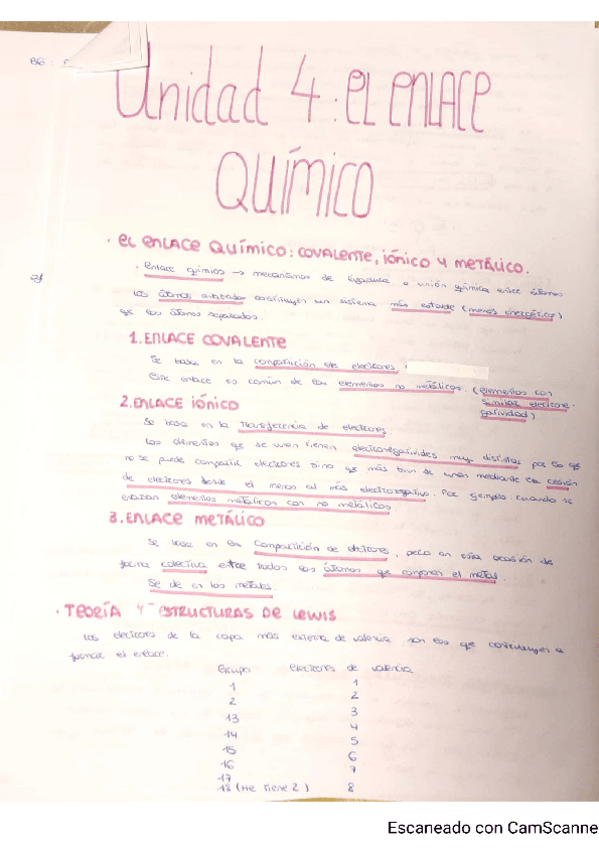 Unidad 4: EL ENLACE
QUÍMICO
· EL ENLACE QUÍMICO: COVALENTE, IÓNICO Y METÁLICO.
· Enlace químico → mecanismos de ligadura o unión química entre átomos
Los átomos enlazados constituyen un sistema más estable (menos energético)
qe los átomos separados.
1. ENLACE COVALENTE
Se basa en la compartición de electrones
Este enlace es común de los elementos no metálicos. (elementos con
similar electrone-
gatividad)
2. ENLACE IÓNICO
Se basa en la transferencia de electrones
Los elementos qe se unen tienen electronegatividades muy distintas por lo qe
no se puede compartir electrones sino qe más bien se unen mediante la cesión
de electrones desde el menos al más electronegativo. Por ejemplo: cuando se
enlazan elementos metálicos con no metálicos
3. ENLACE METÁLICO
Se basa en la compartición de electrones, pero en esta ocasión de
forma colectiva entre todos los átomos que componen el metal.
Se da en los metales.
· TEORÍA Y ESTRUCTURAS DE LEWIS
Los electrones de la capa más externa de valencia son los que contribuyen a
formar el enlace.
Grupo electrones de valencia
1 1
2 2
13 3
14 4
15 5
16 6
17 7
18 (He tiene 2) 8
Escaneado con CamScanne